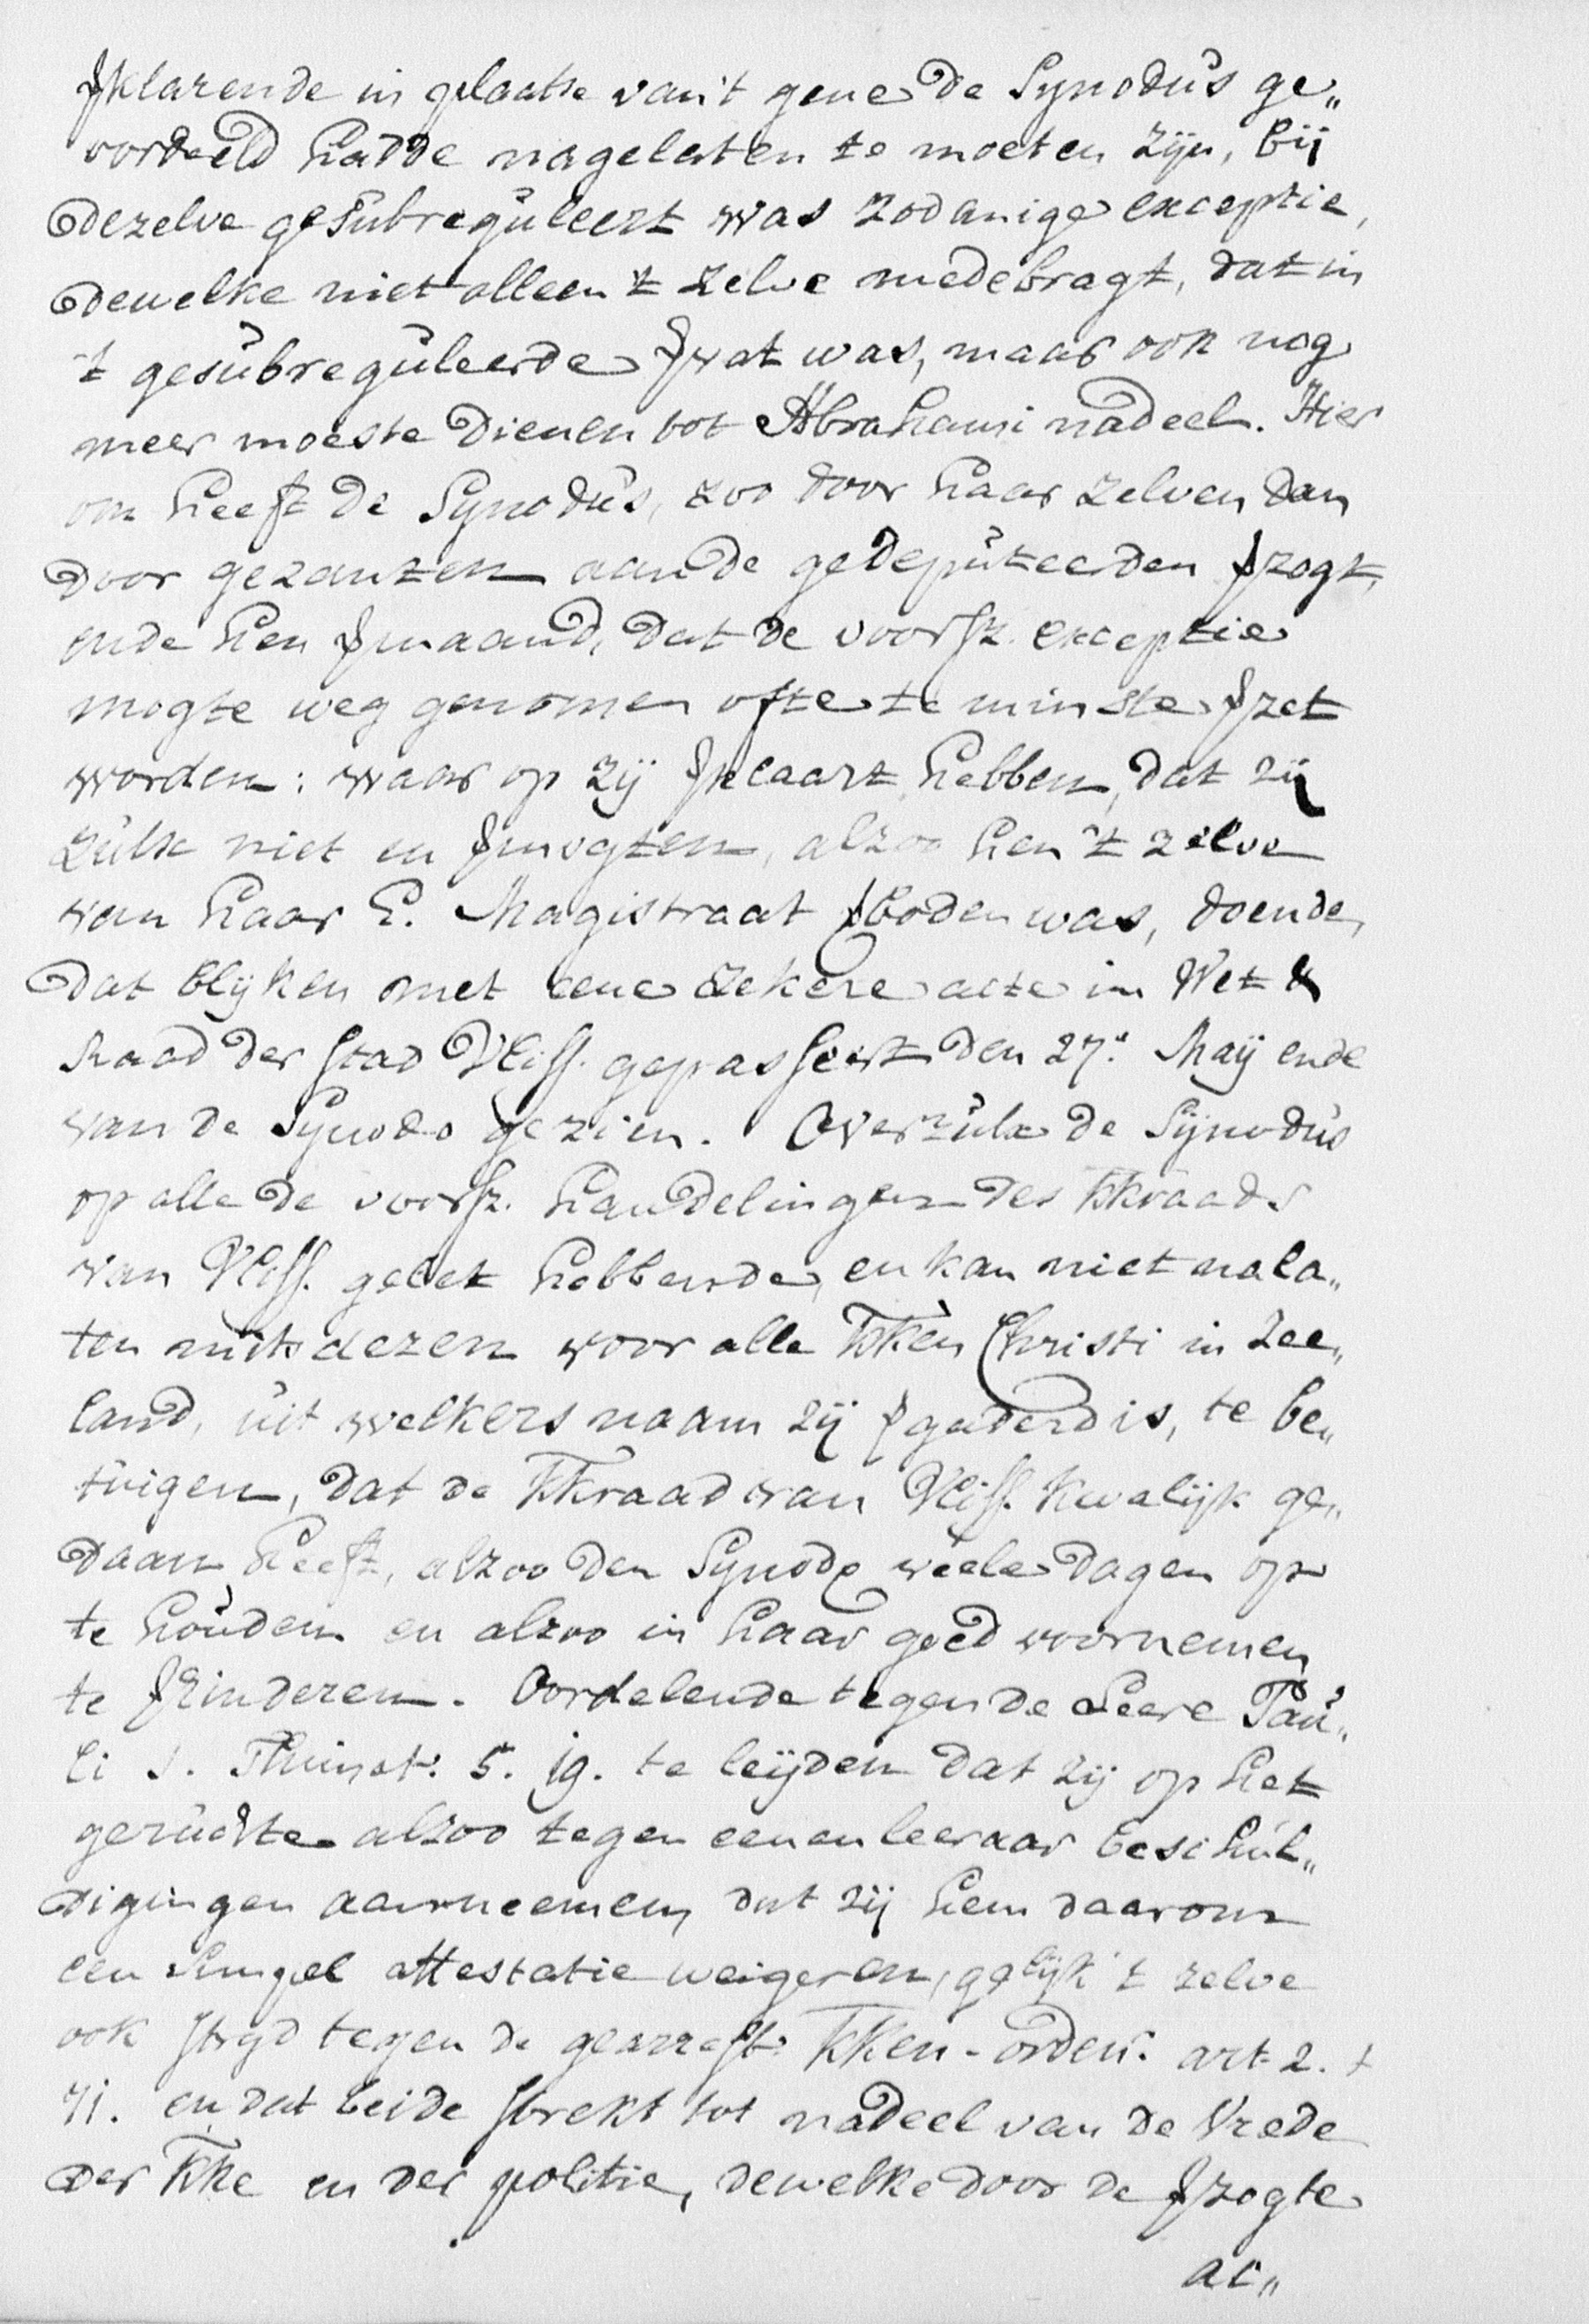 Verklarende in plaatse van 't gene de Synodus ge„
oordeeld hadde nagelaten te moeten zijn, bij
dezelve gesubreguleert was zodanige exceptie,
dewelke niet alleen 't zelve medebragt, dat in
't gesubreguleerde vervat was, maar ook nog
meer moeste dienen tot Abrahami nadeel. Hier
om heeft de Synodus, zoo door haar zelven dan
door gezanten aan de gedeputeerden verzogt,
ende hen vermaand, dat de voorsz. exceptie
mogte weg genomen ofte te minste verzet
worden: waar op zij verklaart hebben, dat zij
zulk niet en vermogten, alzoo hen 't zelve
van haar E. Magistraat verboden was, doende
dat blijken met eene zekere acte in Wet &
Raad der stad Vliss. gepasseert den 27.e Maij ende
van de Synodo gezien. Overzulx de Synodus
op alle de voorsz. handelingen des kkraads
van Vliss. gelet hebbende, en kan niet nala„
ten mits dezen voor alle kken Christi in Zee„
land, uit welkers naam zij vergaderd is, te be„
tuigen, dat de kkraad van Vliss. kwalijk ge„
daan heeft, alzoo den Synode veele dagen op
te houden en alzoo in haar goed voornemen
te verhinderen. Oordelende tegen de Leere Pau„
li 1. Thimot. 5. 19. te leijden dat zij op het
geruchte alzoo tegen eenen leeraar beschul„
digingen aanneemen, dat zij hem daarom
een simpel attestatie weigeren, gelijk 't zelve
ook strijd tegen de gearrest. kken-orden. art. 2. &
71. en dat beide strekt tot nadeel van de Vrede
der kke en der politie, dewelke door de verzogte
at„